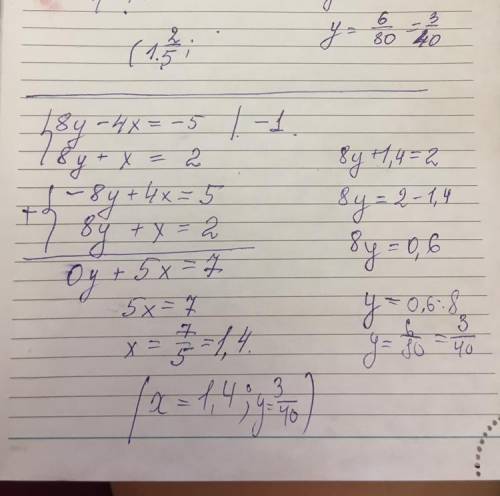 y = 6/80 = 3/40
(1. 2/5;
{8y - 4x = -5 |. -1.
8y + x = 2
+{-8y + 4x = 5
8y + x = 2
0y + 5x = 7
5x = 7
x = 7/5 = 1,4.
8y + 1,4 = 2
8y = 2 - 1,4
8y = 0,6
y = 0,6 : 8
y = 6/80 = 3/40
(x = 1,4; y = 3/40)